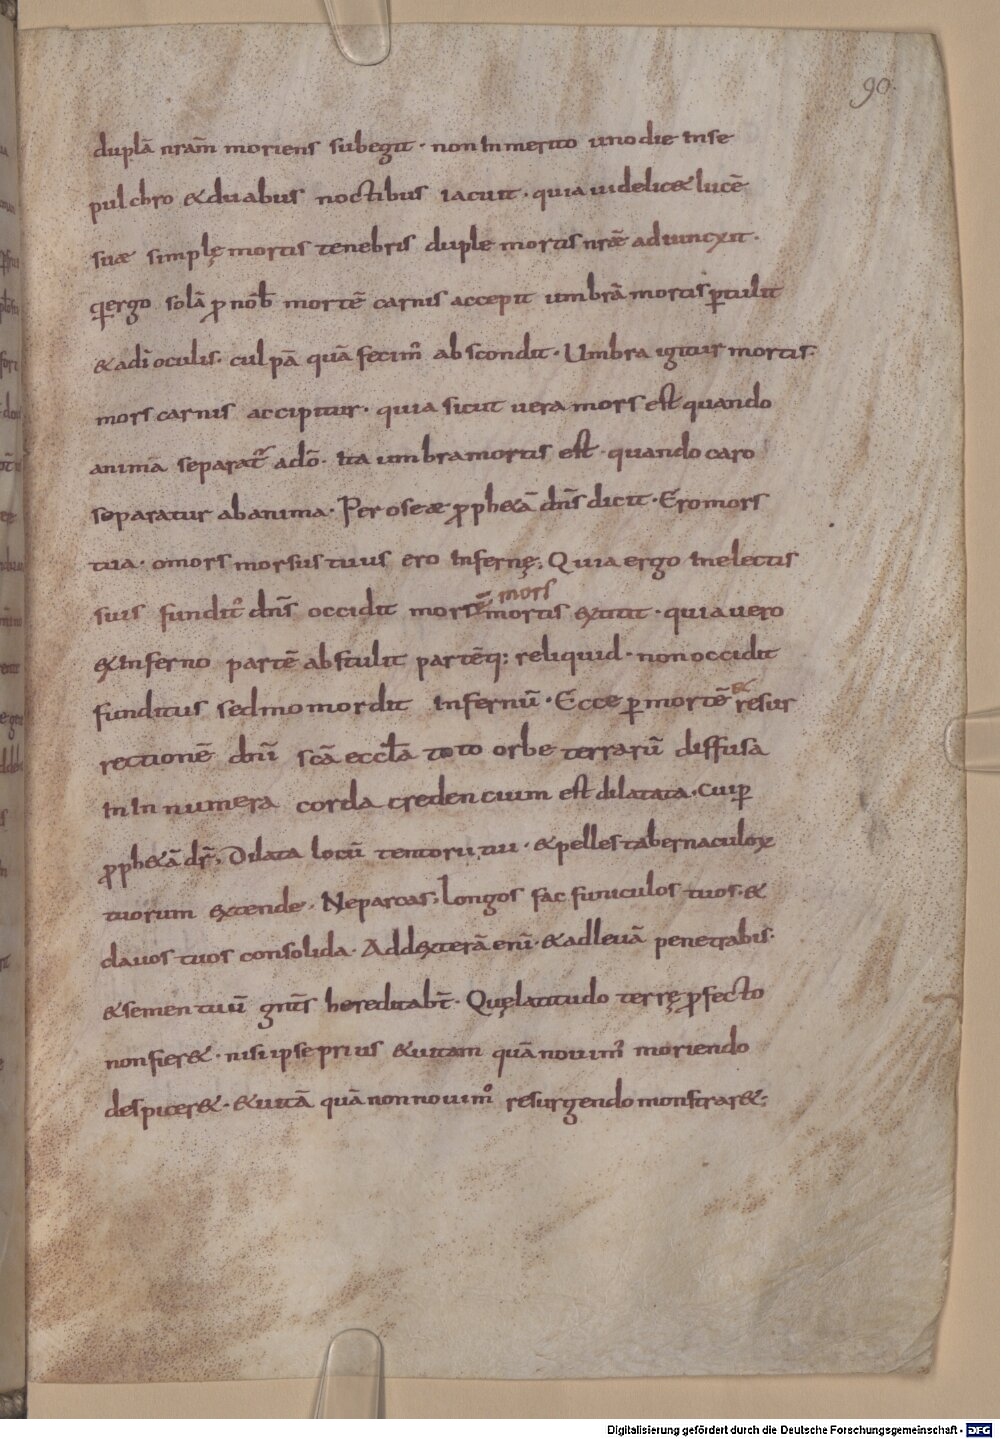 90.
duplā nrām moriens subegit · non inmerito uno die inse
pulchro & duabus noctibus iacuit · quia uidelic& lucē
suæ simplę mortis tenebris duple mortis nrǣ adiuncxit ·
q̇ ergo solā ꝓ nob̄ mortē carnis accepit umbrā mortis ꝑtulit
& a dī oculis · culpā quā fecim᷒ abscondit · Umbra igitur mortis ·
mors carnis accipitur · quia sicut uera mors est quando
anima separat᷑ a dō · ita umbra mortis est · quando caro
separatur ab anima · Per oseæ ꝓph&ā dn̄s dicit · Ero mors
tua · o mors morsus tuus ero infernę; Quia ergo in electis
suis fundit᷒ dn̄s occidit mortē mors mortis extitit · quia uero
ex inferno partē abstulit partēq; reliquid · non occidit
funditus sed momordit infernū · Ecce ꝑ mortē & resur
rectionē dn̄i scā eccl̄a toto orbe terrarū diffusa
in innumera corda credentium est dilatata · Cui ꝑ
ꝓph&ā dr̄; Dilata locū tentorii tui · & pelles tabernaculoꝝ
tuorum extende · Ne parcas; longos fac funiculos tuos · &
clauos tuos consolida · Ad dexterā enī · & ad leuā penetrabis ·
& semen tuū gn̄ts hereditabt̄ · Quę latitudo terrę ꝓfecto
non fier& · nisi ipse prius & uitam quā nouim᷒ moriendo
despicer& · & uitā quā non nouim᷒ resurgendo monstrar&;
Digitalisierung gefördert durch die Deutsche Forschungsgemeinschaft - DFG